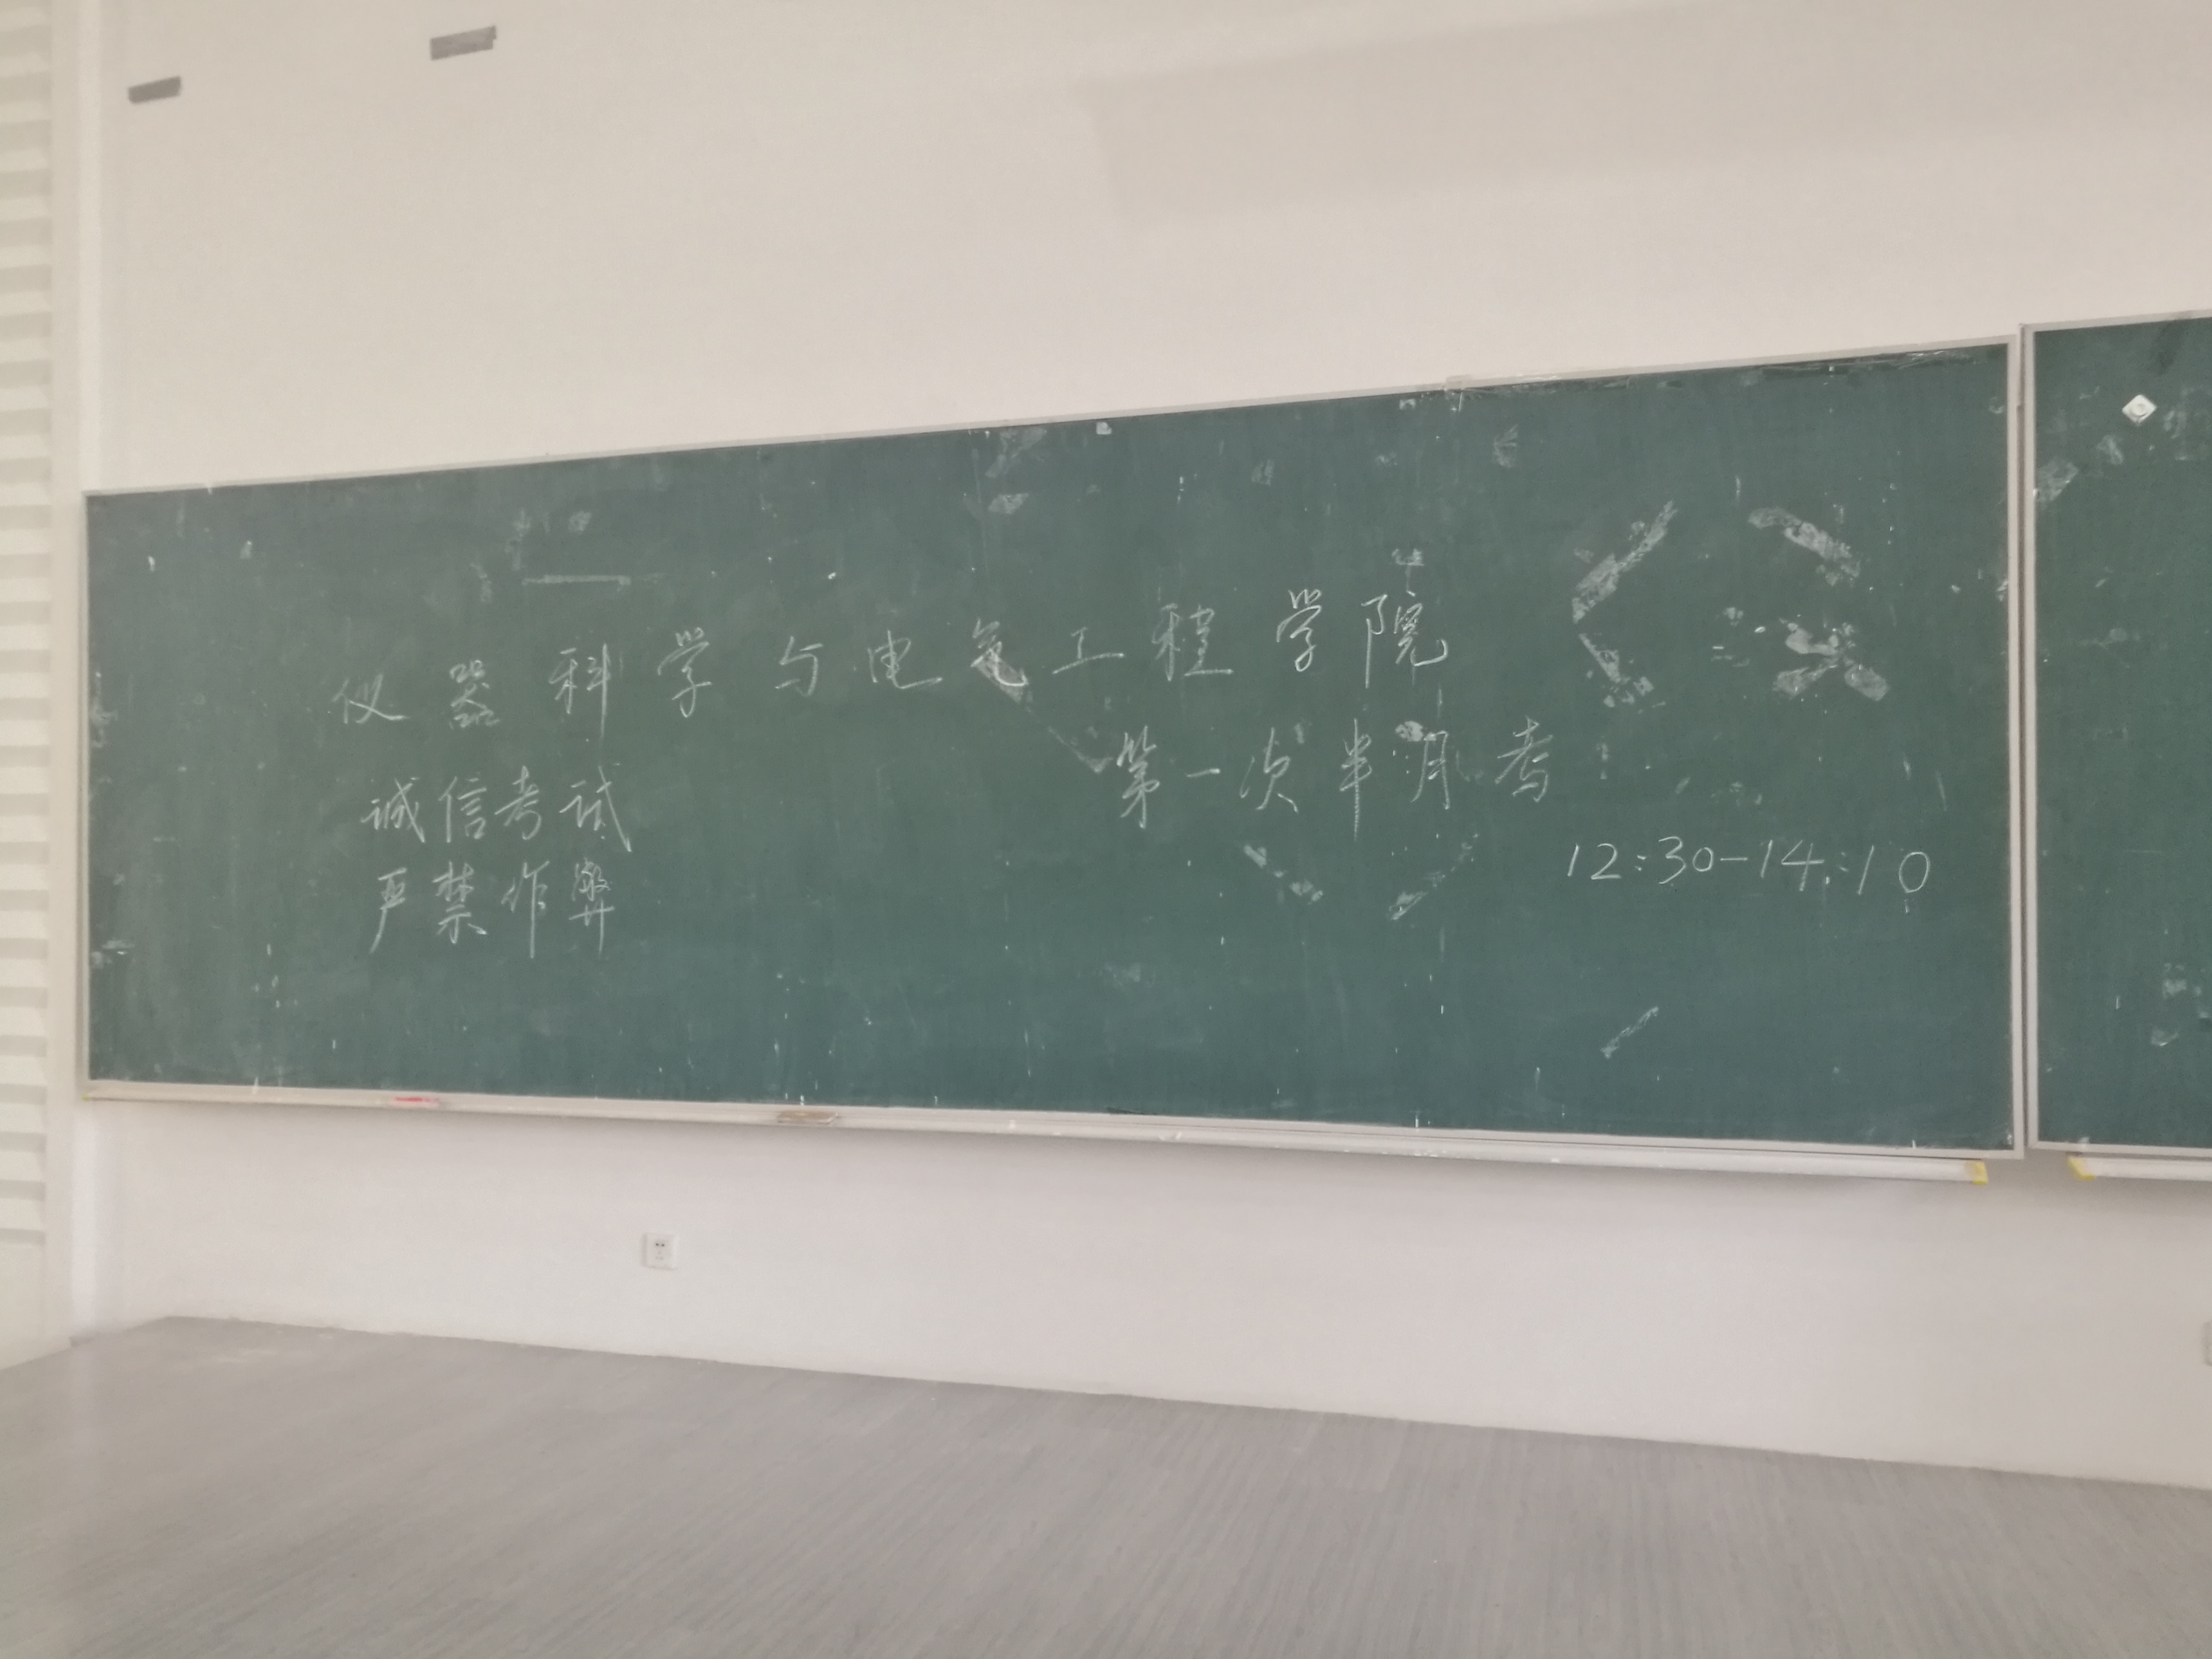 仪器科学与电气工程学院
第一次半月考
诚信考试
严禁作弊
12:30-14:10